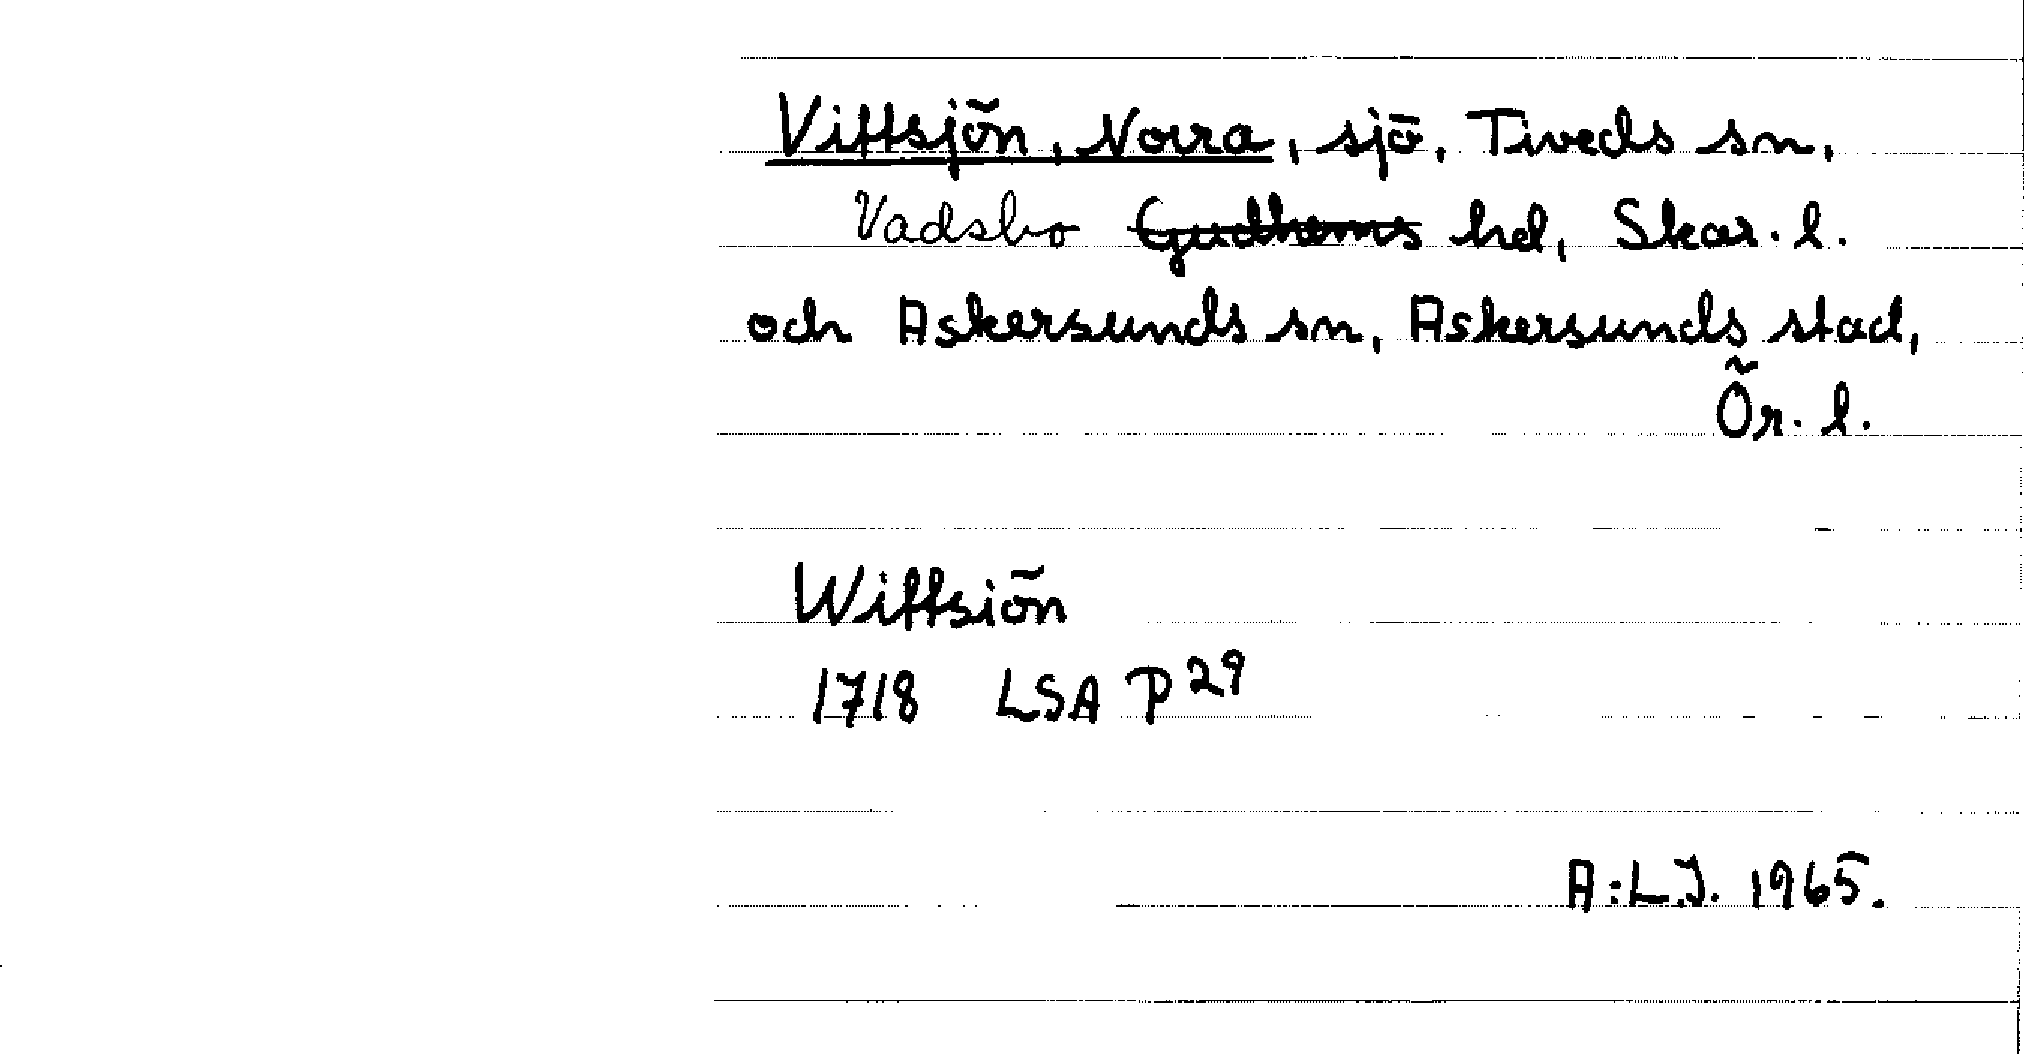 Vittsjön, Norra, sjö, Tiveds sn,
Vadsbo Gudhems hd, Skar. l.
och Askersunds sn, Askersunds stad,
Ör. l.
Wittsiön
1718 LSA P 29
A:L.J. 1965.